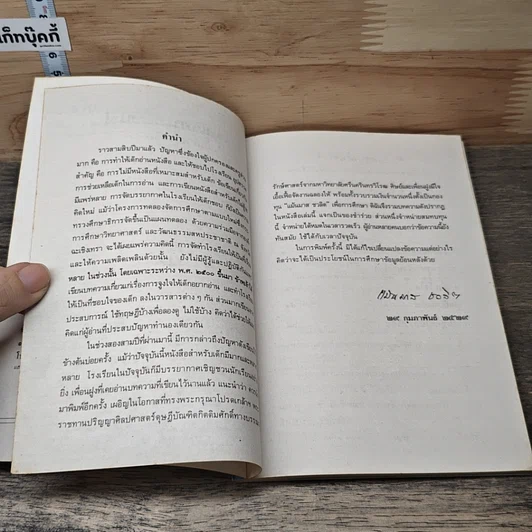 เก็ทบุ๊คกี้
คำนำ
ราวสามสิบปีมาแล้ว ปัญหาซึ่งข้องใจผู้ปกครอง
มาก คือ การทำให้เด็กอ่านหนังสือ และให้ชอบไปโรงเรียน
สำคัญ คือ ไม่มีหนังสือที่เหมาะสมสำหรับเด็ก
การช่วยเหลือเด็กในการอ่าน และการเขียนหนังสือสำหรับเด็ก
มีแพร่หลาย การจัดบรรยากาศในโรงเรียนให้เด็กชอบ
คิดใหม่ แม้ว่าโครงการทดลองจัดการศึกษาตามแบบใหม่
ทรวงศึกษาธิการจัดขึ้นเป็นแผนทดลอง ด้วยความร่วมมือ
การศึกษาวิทยาศาสตร์ และวัฒนธรรมสหประชาชาติ ณ
ฉะเชิงเทรา จะได้เผยแพร่ความคิดนี้ การจัดทำโรงเรียนให้เป็น
และให้ความเพลิดเพลินด้วยนั้น ยังไม่มีผู้รู้และปฏิบัติ
หลาย ในช่วงนั้น โดยเฉพาะระหว่าง พ.ศ. ๒๕๐๐ ขึ้นมา ข้าพเจ้า
เขียนบทความเกี่ยวแก่เรื่องการจูงใจให้เด็กอยากอ่าน และทำ
ให้เป็นที่ชอบใจของเด็ก ลงในวารสารต่าง ๆ กัน ส่วนมาก
ประสบการณ์ ใช้ทฤษฎีบ้างเพื่อลองดู ไม่ใช้บ้าง คิดว่าได้ช่วย
คิดแก่ผู้อ่านที่ประสบปัญหาทำนองเดียวกัน
ในช่วงสองสามปีที่ผ่านมานี้ มีการกล่าวถึงปัญหา
ข้างต้นบ่อยครั้ง แม้ว่าปัจจุบันนี้หนังสือสำหรับเด็กมีมาก
หลาย โรงเรียนในปัจจุบันก็มีบรรยากาศเชิญชวนนักเรียน
ยิ่ง เพื่อนฝูงที่เคยอ่านบทความที่เขียนไว้นานแล้ว แนะนำว่า
มาพิมพ์อีกครั้ง เผอิญในโอกาสที่ทรงพระกรุณาโปรดเกล้าฯ
ราชทานปริญญาศิลปศาสตรดุษฎีบัณฑิตกิตติมศักดิ์ทางบรรณ
รักษ์ศาสตร์จากมหาวิทยาลัยศรีนครินทรวิโรฒ ศิษย์และเพื่อนฝูงมีใจ
เอื้อเฟื้อจัดงานฉลองให้ พร้อมทั้งรวบรวมเงินจำนวนหนึ่งขึ้นเป็นกอง
ทุน "แม้นมาส ชวลิต" เพื่อการศึกษา ดิฉันจึงรวบบทความดังปรากฏ
ในหนังสือเล่มนี้ แจกเป็นของชำร่วย ส่วนหนึ่งจำหน่ายสมทบทุนนี้
จำหน่ายได้หมดในเวลารวดเร็ว ผู้อ่านหลายคนบอกว่าข้อความนี้ยัง
ทันสมัย ใช้ได้กับเวลาปัจจุบัน
ในการพิมพ์ครั้งนี้ มิได้แก้ไขเปลี่ยนแปลงข้อความแต่อย่างไร
คิดว่าจะได้เป็นประโยชน์ในการศึกษาข้อมูลย้อนหลังด้วย
แม้นมาส ชวลิต
๒๙ กุมภาพันธ์ ๒๕๒๙